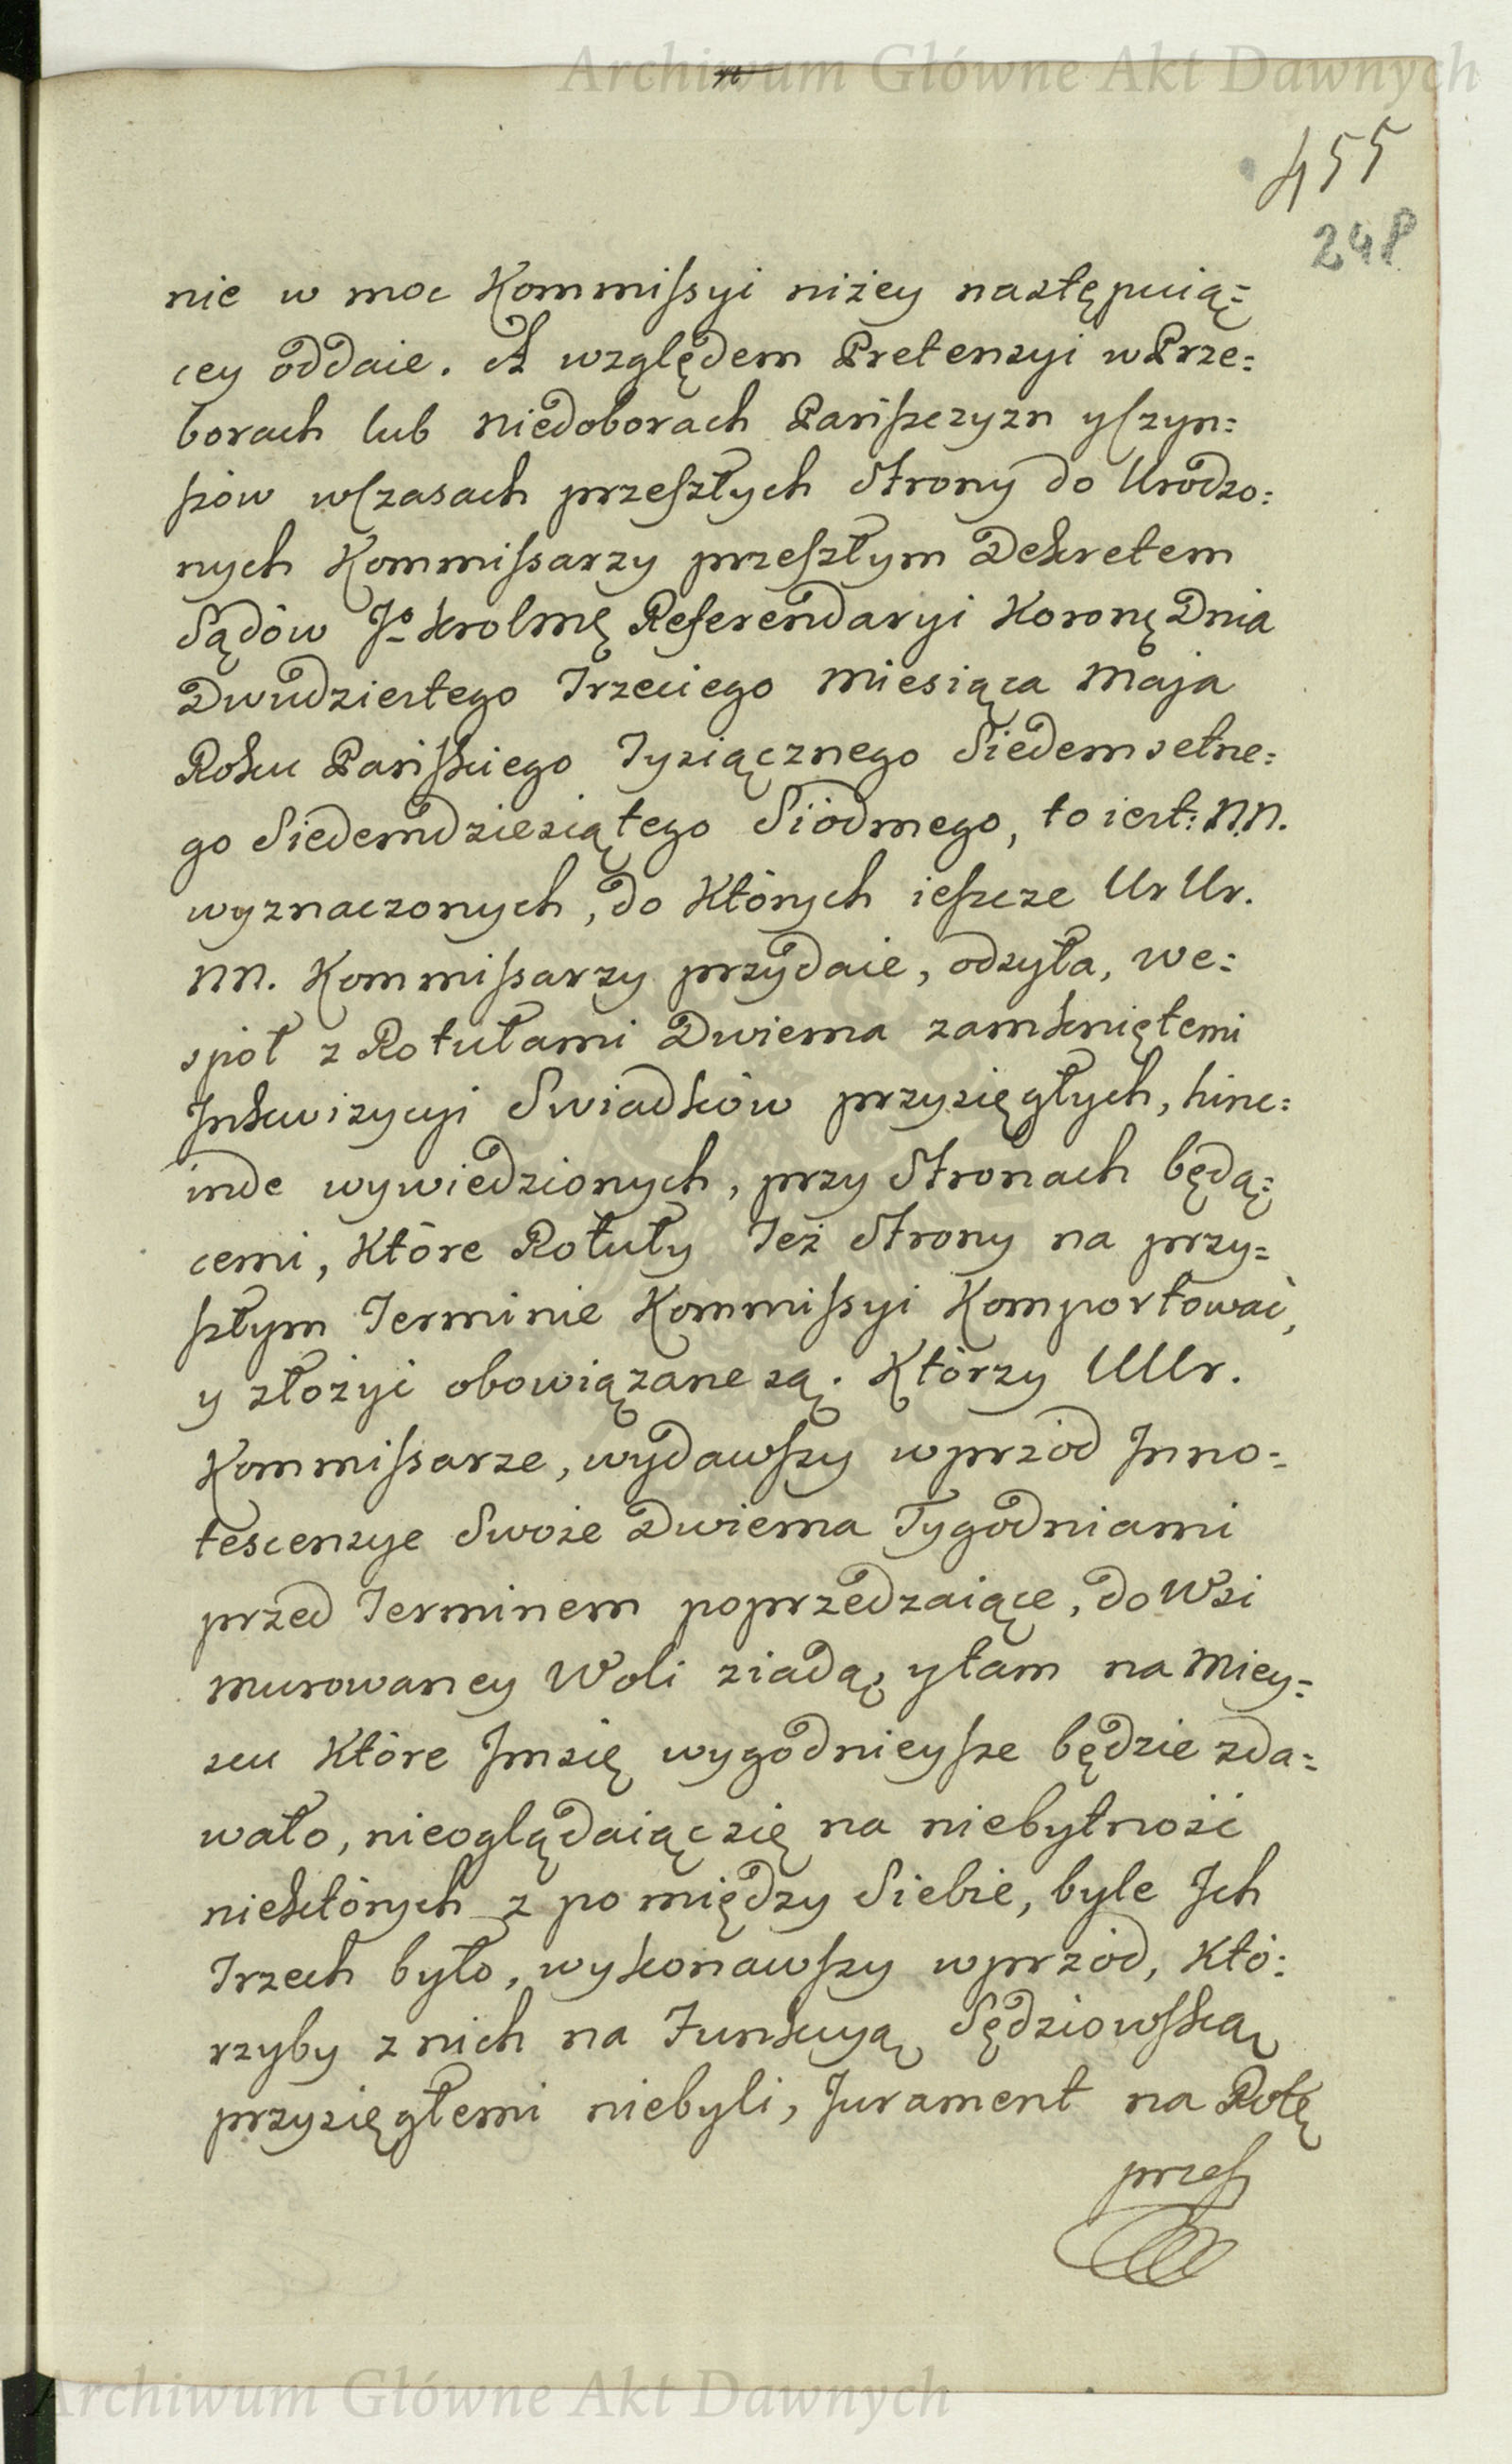 Archiwum Główne Akt Dawnych
455
248
nie w moc Kommissyi niżey następuią=
cey oddaie. A względem Pretensyi w Prze=
borach lub niedoborach Pańszczyzn y Czyn=
szów w Czasach przeszłych Strony do Urodzo=
nych Kommissarzy przeszłym Dekretem
Sądów Jo Krolmę Referendaryi Koronę Dnia
Dwudziestego Trzeciego Miesiąca Maja
Roku Pańskiego Tysiącznego Siedemsetne=
go Siedemdziesiątego Siódmego, to iest: N.N.
wyznaczonych, do Których ieszcze Ur Ur.
NN. Kommissarzy przydaie, odsyła, we=
spół z Rotułami Dwiema zamkniętemi
Inkwizycyi Swiadków przysięgłych, hinc=
inde wywiedzionych, przy Stronach będą=
cemi, Które Rotuły Też Strony na przy=
szłym Terminie Kommissyi Komportować,
y złożyć obowiązane są. Którzy UUr.
Kommissarze, wydawszy wprzód Inno=
tescensye Swoie Dwiema Tygodniami
przed Terminem poprzedzaiące, do Wsi
murowaney Woli ziadą, y tam na Miey=
scu Które Im się wygodnieysze będzie zda=
wało, nieoglądaiąc się na niebytność
niektórych z pomiędzy Siebie, byle Ich
Trzech było, wykonawszy wprzód, Któ=
rzyby z nich na Funkcyą Sędziowską
przysięgłemi niebyli, Jurament na Rotę
przesz
Archiwum Główne Akt Dawnych